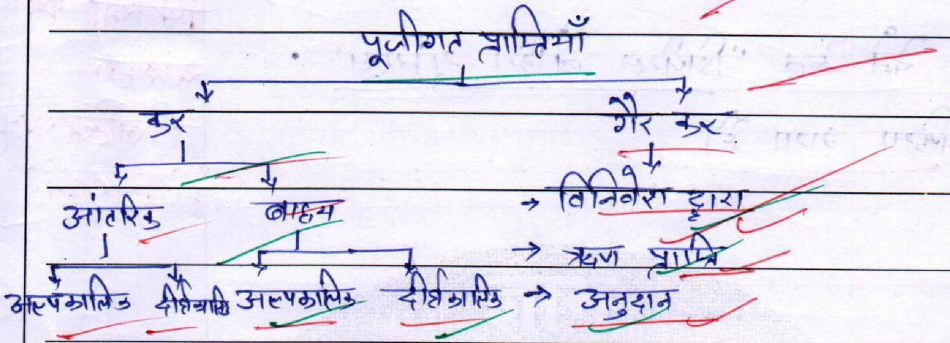 पूजीगत प्राप्तियाँ
कर गैर कर
आंतरिक बाह्य → विनिवेश द्वारा
→ ऋण प्राप्ति
अल्पकालिक दीर्घकालि अल्पकालिक दीर्घकालिक → अनुदान